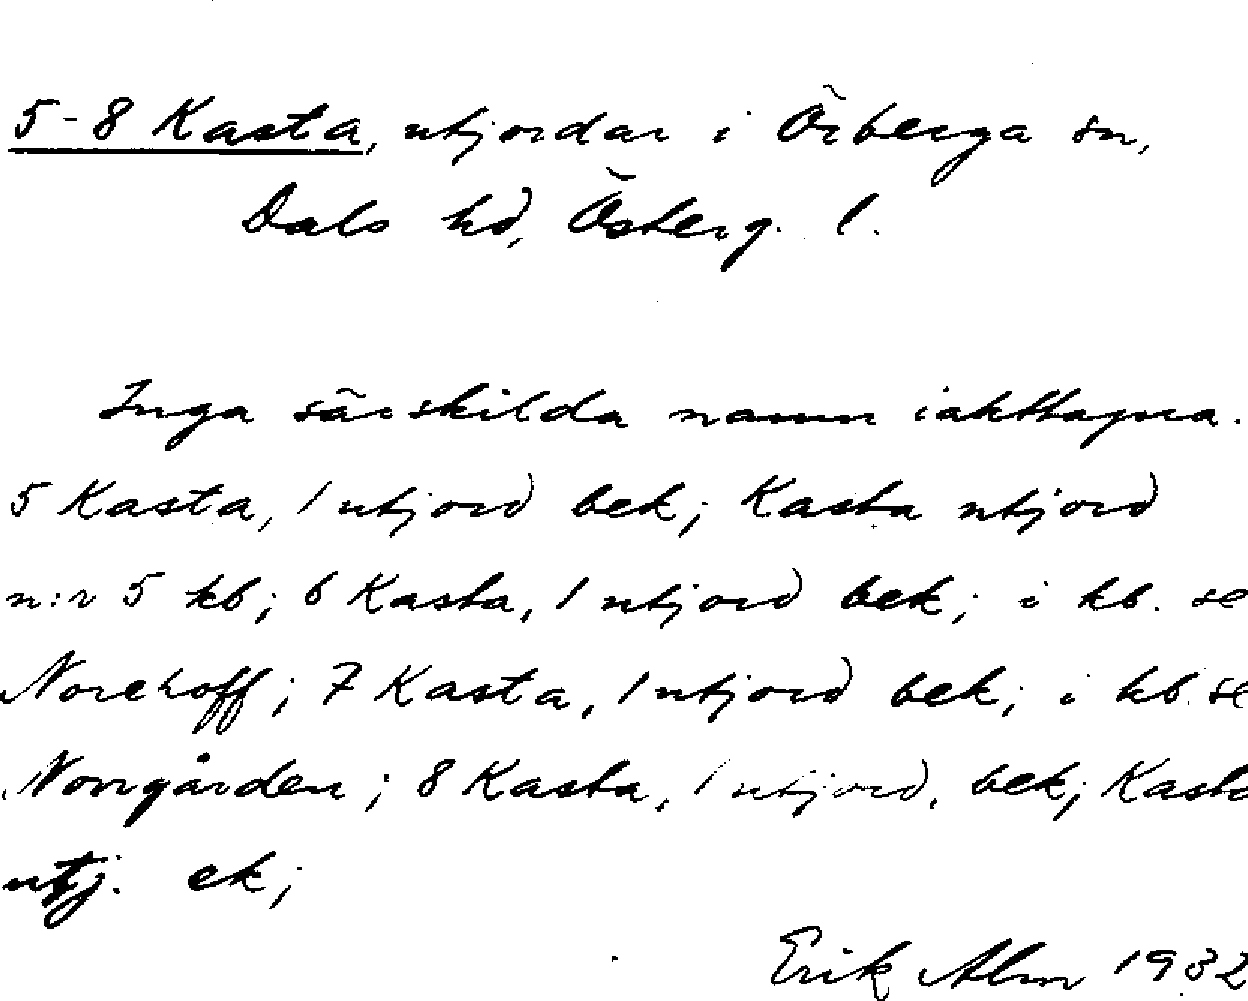 5-8 Kasta, utjordar i Örberga sn,
Dals hd, Österg. l.
Inga särskilda namn iakttagna.
5 Kasta, 1 utjord bek; Kasta utjord
n:r 5 kb; 6 Kasta, 1 utjord bek; i kb. se
Norehoff; 7 Kasta, 1 utjord bek; i kb. se
Norrgården; 8 Kasta, 1 utjord, bek; Kasta
utj. ek;
Erik Alm 1932